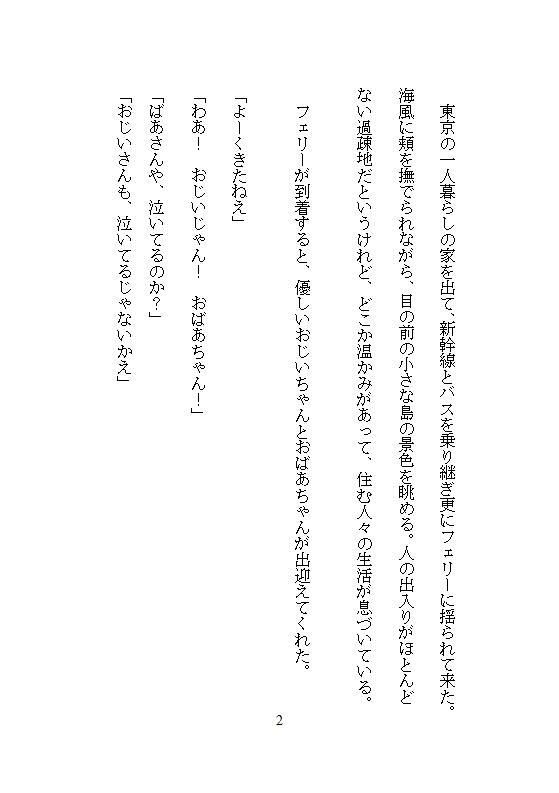 東京の一人暮らしの家を出て、新幹線とバスを乗り継ぎ更にフェリーに揺られて来た。
海風に頬を撫でられながら、目の前の小さな島の景色を眺める。人の出入りがほとんど
ない過疎地だというけれど、どこか温かみがあって、住む人々の生活が息づいている。
　フェリーが到着すると、優しいおじいちゃんとおばあちゃんが出迎えてくれた。
「よーくきたねえ」
「わあ！　おじいじゃん！　おばあちゃん！」
「ばあさんや、泣いてるのか？」
「おじいさんも、泣いてるじゃないかえ」
2